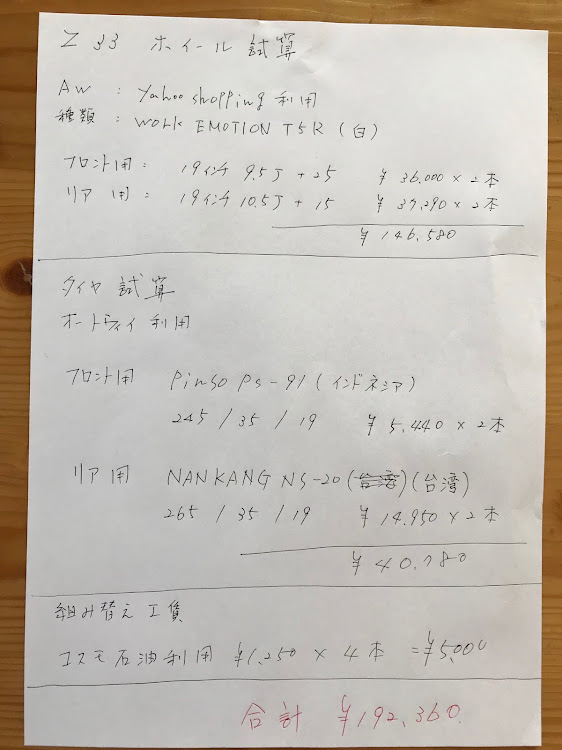 Z33 ホイール試算
AW : Yahoo shopping利用
種類 : WORK EMOTION T5R (白)
フロント用 : 19インチ 9.5J +25 ¥36.000×2本
リア用 : 19インチ 10.5J +15 ¥37.290×2本
¥146.580
タイヤ試算
オートウェイ利用
フロント用 Pinso Ps-91(インドネシア)
245/35/19 ¥5.440×2本
リア用 NANKANG NS-20(台湾)(台湾)
265/35/19 ¥14.950×2本
¥40.780
組み替え工賃
コスモ石油利用 ¥1.250×4本=¥5.000
合計 ¥192.360